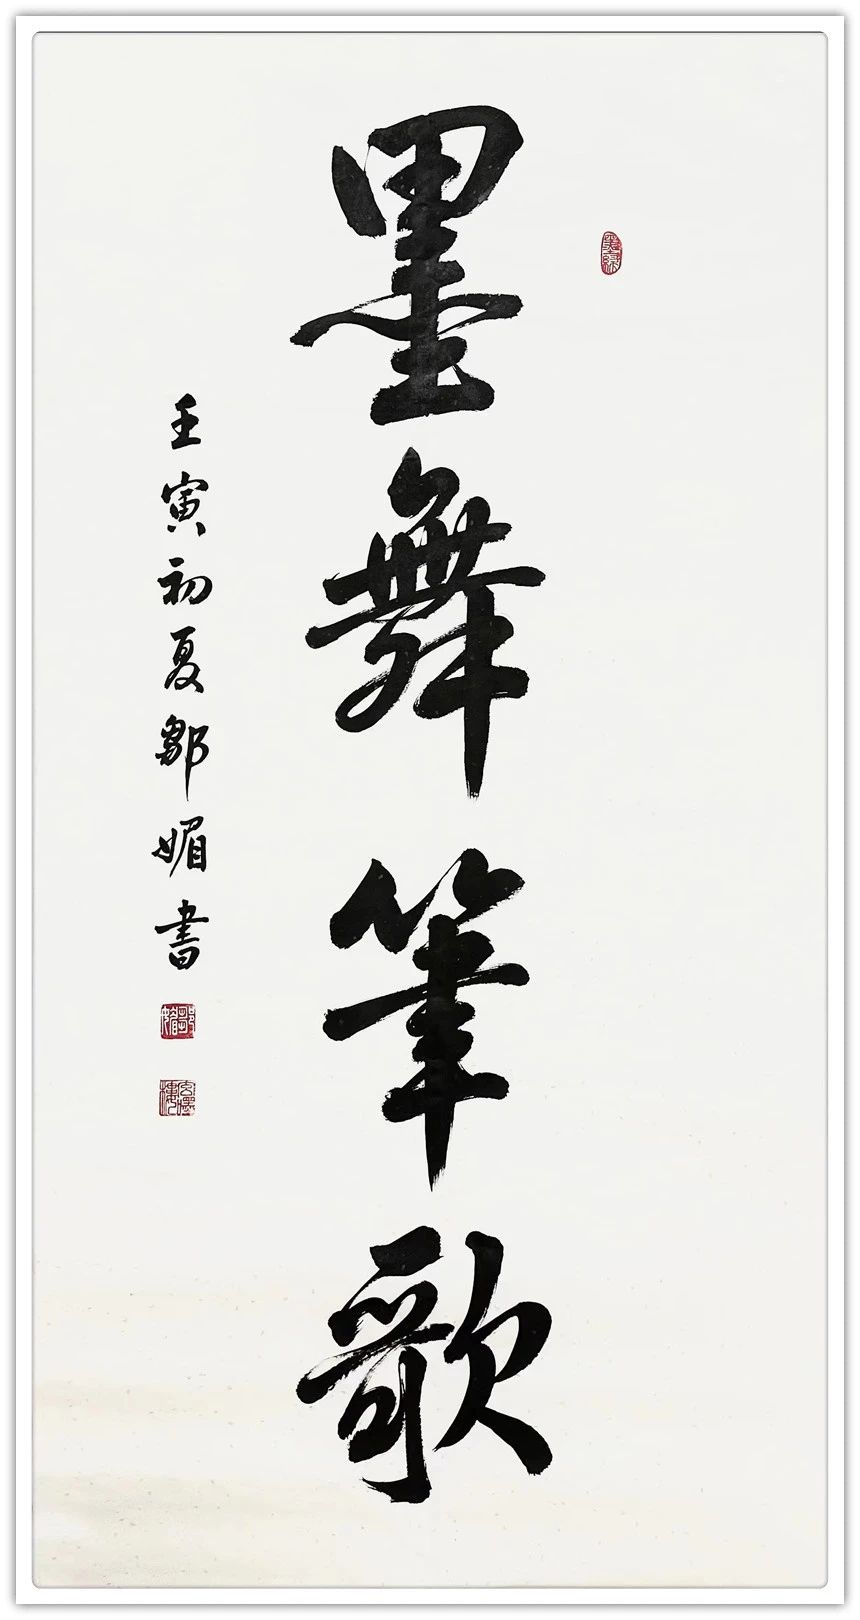 墨舞筆歌
壬寅初夏鄒媚書